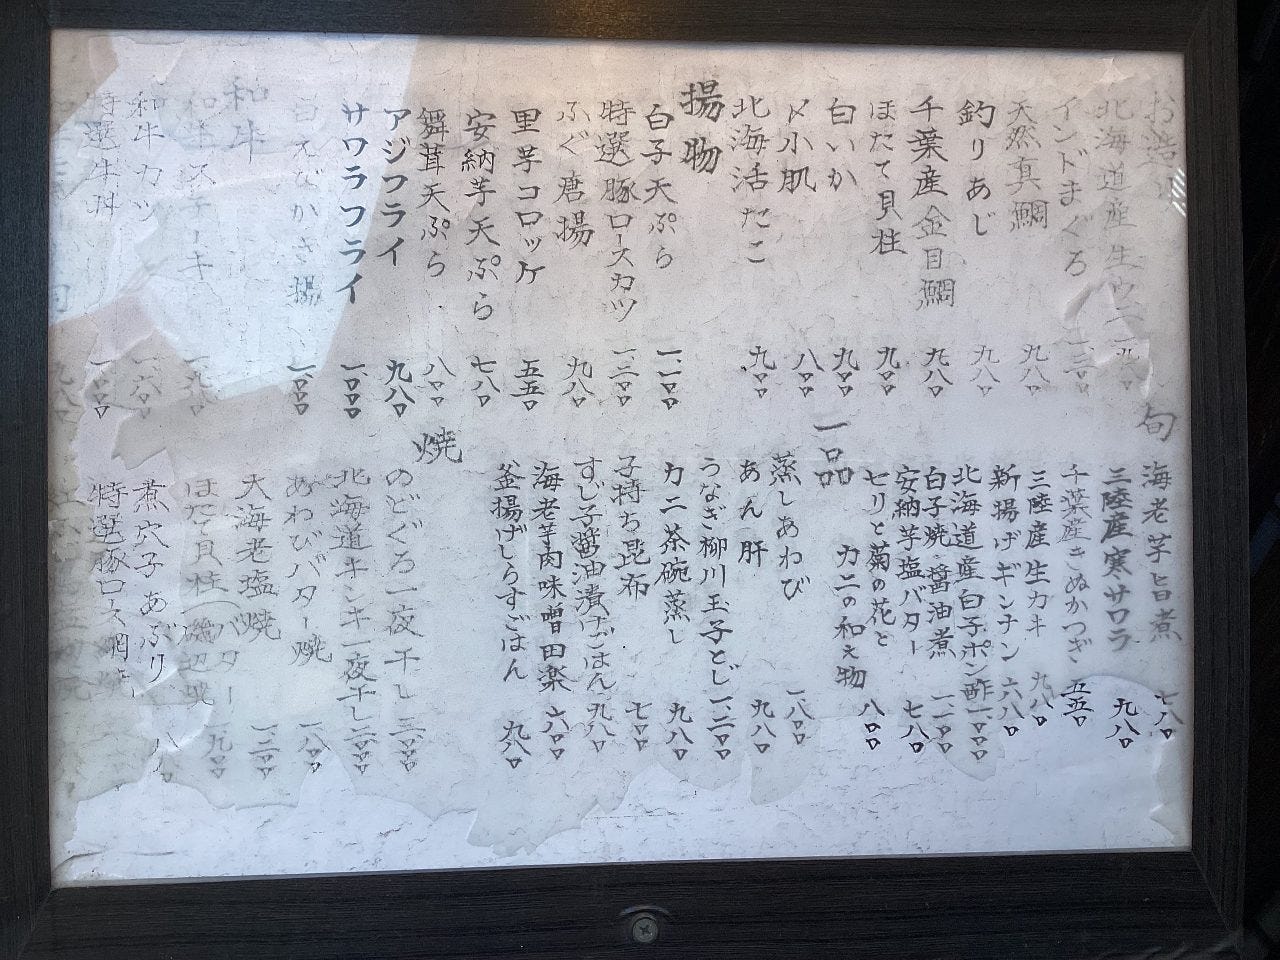 お造り
北海道産生ウニ 一、九八〇
インドまぐろ 一、二〇〇
天然真鯛 九八〇
釣りあじ 九八〇
千葉産金目鯛 九八〇
ほたて貝柱 九〇〇
白いか 九〇〇
〆小肌 八〇〇
北海活たこ 九〇〇
揚物
白子天ぷら 一、一〇〇
特選豚ロースカツ 一、三〇〇
ふぐ唐揚 九八〇
里芋コロッケ 五五〇
安納芋天ぷら 七八〇
舞茸天ぷら 八〇〇
アジフライ 九八〇
サワラフライ 一、〇〇〇
白えびかき揚 一、〇〇〇
和牛
和牛ステーキ
和牛カツ
特選牛丼
旬
海老芋旨煮 七八〇
三陸産寒サワラ 九八〇
千葉産きぬかつぎ 五五〇
三陸産生カキ 九八〇
新揚げギンナン 六八〇
北海道産白子ポン酢 一、〇〇〇
白子焼・醤油煮 一、一〇〇
安納芋塩バター 七八〇
セリと菊の花と
カニの和え物 八〇〇
一品
蒸しあわび 一、八〇〇
あん肝 九八〇
うなぎ柳川玉子とじ 一、二〇〇
カニ茶碗蒸し 九八〇
子持ち昆布 七〇〇
すじ子醤油漬けごはん 九八〇
海老芋肉味噌田楽 六〇〇
釜揚げしらすごはん 九八〇
焼
のどぐろ一夜干し 三、〇〇〇
北海道キンキ一夜干し 三、〇〇〇
あわびバター焼 一、八〇〇
大海老塩焼 一、二〇〇
ほたて貝柱(バター・磯辺焼 一、九〇〇
煮穴子あぶり
特選豚ロース網焼